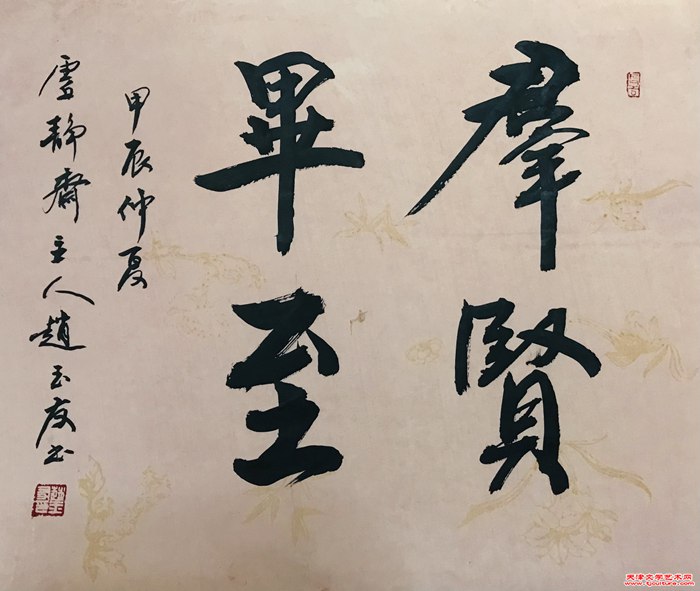 羣賢
畢至
甲辰仲夏
虛静齋主人趙玉友书
天津文学艺术网
www.tjcultura.com